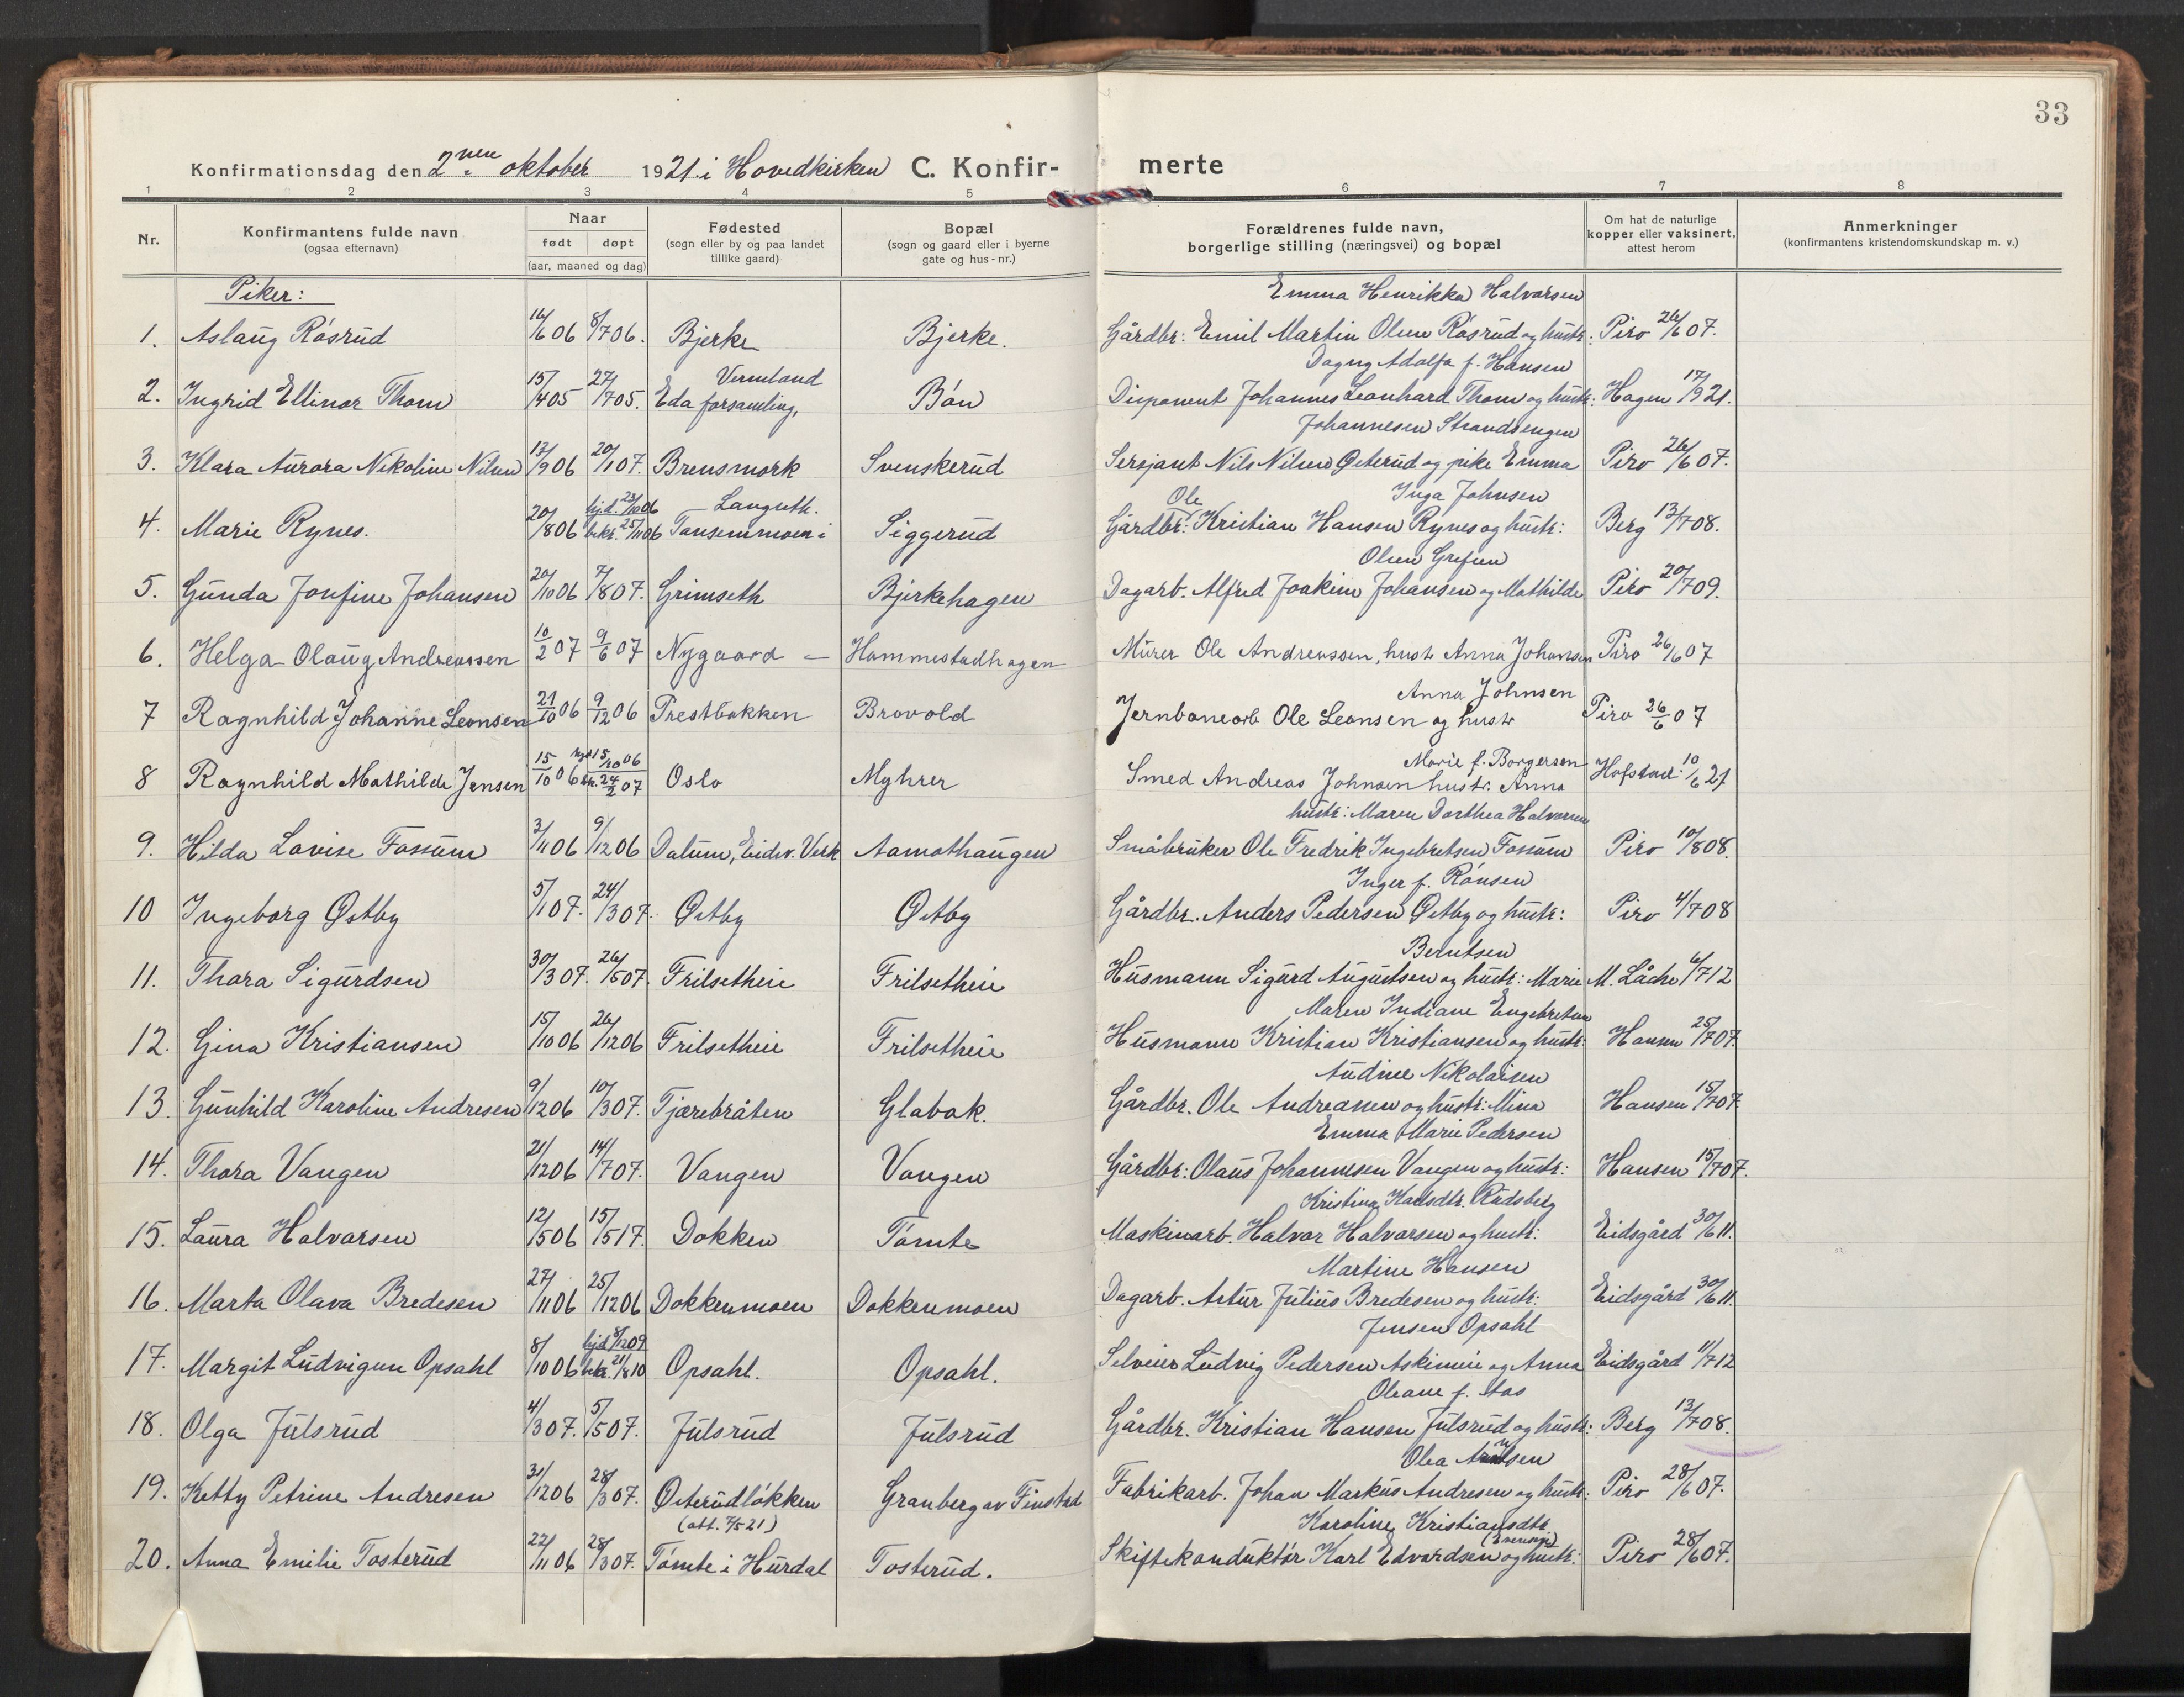 33
Konfirmationsdag den 2nen oktober 1921 i Hovedkirken C. Konfir- merte
1 2 3 4 5 6 7 8
Nr. Konfirmantens fulde navn (ogsaa efternavn) Naar født døpt (aar, maaned og dag) Fødested (sogn eller by og paa landet tillike gaard) Bopæl (sogn og gaard eller i byerne gate og hus-nr.) Forældrenes fulde navn, borgerlige stilling (næringsvei) og bopæl Om hat de naturlige kopper eller vaksinert, attest herom Anmerkninger (konfirmantens kristendomskundskap m. v.)
Piker:
Emma Henrikka Halvorsen
1. Aslaug Røsrud 16/6 06 8/7 06. Bjerke Bjerke. Gårdbr: Emil Martin Olsen Røsrud og hustr: Piro 26/6 07.
Vermland Dagny Adolfa f. Hansen
2. Ingrid Ellinor Thom 15/4 05 27/7 05. Eda forsamling, Bøn Disponent Johannes Leonhard Thom og hustr: Hagen 17/9 21.
Johannesen Strandsengen
3. Klara Aurora Nikoline Nilsen 13/9 06 20/1 07. Brensmork Svenskerud Sersjant Nils Nilsen Østerud og pike Emma Piro 26/6 07.
hjd. 23/10 06 Langseth. Ole Inga Johnsen
4. Marie Rynes. 20/8 06 bekr. 25/11 06 Tansemmoen i Siggerud Gårdbr: Kristian Hansen Rynes og hustr: Berg 13/7 08.
Olsen Grefsen
5. Gunda Jonfine Johansen 20/10 06 7/8 07. Grimseth Bjerkehagen Dagarb. Alfred Joakim Johansen og Mathilde Piro 20/7 09.
6. Helga Olaug Andreassen 10/2 07 9/6 07 Nygaard – Hammestadhagen Murer Ole Andreassen, hust Anna Johansen Piro 26/6 07
Anna Johnsen
7 Ragnhild Johanne Leonsen 21/10 06 9/12 06 Prestbakken Brovold Jernbanearb Ole Leonsen og hustr Piro 26/6 07
hjd 15/10 06 Marie f. Borgersen
8 Ragnhild Mathilde Jensen 15/10 06 bk. 24/2 07 Oslo Myhrer Smed Andreas Johnsen hustr. Anna Hofstad: 10/6 21
hustr: Maren Dorthea Halvorsen
9. Hilda Lovise Fossum 3/11 06 9/12 06 Dalum, Eidsv. Verk Aamothaugen Småbruker Ole Fredrik Ingebretsen Fossum Piro 10/8 08.
Inger f. Rønsen
10 Ingeborg Østby 5/1 07. 24/3 07. Østby Østby Gårdbr. Anders Pedersen Østby og hustr: Piro 4/7 08
Berntsen
11. Thora Sigurdsen 30/3 07. 26/5 07. Frilsetheie Frilsetheie Husmann Sigurd Augustsen og hustr: Marie M. Låche 6/7 12
Maren Indiane Engebretsen
12. Gina Kristiansen 15/10 06 26/12 06 Frilsetheie Frilsetheie Husmann Kristian Kristiansen og hustr: Hansen 25/7 07.
Audine Nikolaisen
13. Gunhild Karoline Andresen 9/12 06 10/3 07. Tjærebråten Glabak. Gårdbr. Ole Andreassen og hustr: Mina Hansen 15/7 07.
Emma Marie Pedersen
14. Thora Vangen 21/12 06 14/7 07. Vangen Vangen Gårdbr: Olaus Johannesen Vangen og hustr: Hansen 15/7 07.
Kristine Karlsdtr. Rudsberg
15. Laura Halvorsen 12/5 06 15/5 17. Dokken Tømte Maskinarb. Halvor Halvorsen og hustr: Eidsgård 30/6 11.
Martine Hansen
16. Marta Olava Bredesen 27/11 06 25/12 06 Dokkenmoen Dokkenmoen Dagarb. Artur Julius Bredesen og hustr: Eidsgård 30/6 11.
hjd 8/12 09 Jensen Opsahl
17. Margit Ludvigun Opsahl 8/10 06 bekr. 21/8 10 Opsahl. Opsahl. Selveier Ludvig Pedersen Askimeie og Anna Eidsgård 11/7 12
Oleane f. Aas
18. Olga Julsrud 4/3 07. 5/5 07. Julsrud Julsrud Gårdbr. Kristian Hansen Julsrud og hustr: Berg 13/7 08.
Olea
19. Ketty Petrine Andresen 31/12 06 28/3 07. Østerudløkken Granberg av Finstad Fabrikarb. Johan Markus Andresen og hustr: Piro 28/6 07.
(att. 7/5 21) Karoline Kristiansdtr.
20. Anna Emilie Tosterud 22/11 06 28/3 07. Tømte i Hurdal Tosterud. Skiftekonduktør Karl Edvardsen og hustr: Piro 28/6 07.